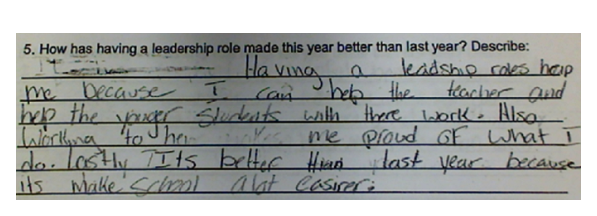 5. How has having a leadership role made this year better than last year? Describe:
Having a leadship roles help
me because I can help the teacher and
help the younger students with there work. Also
Working to me proud of what I
do. lastly Its better than last year because
its make school a lot easirer.